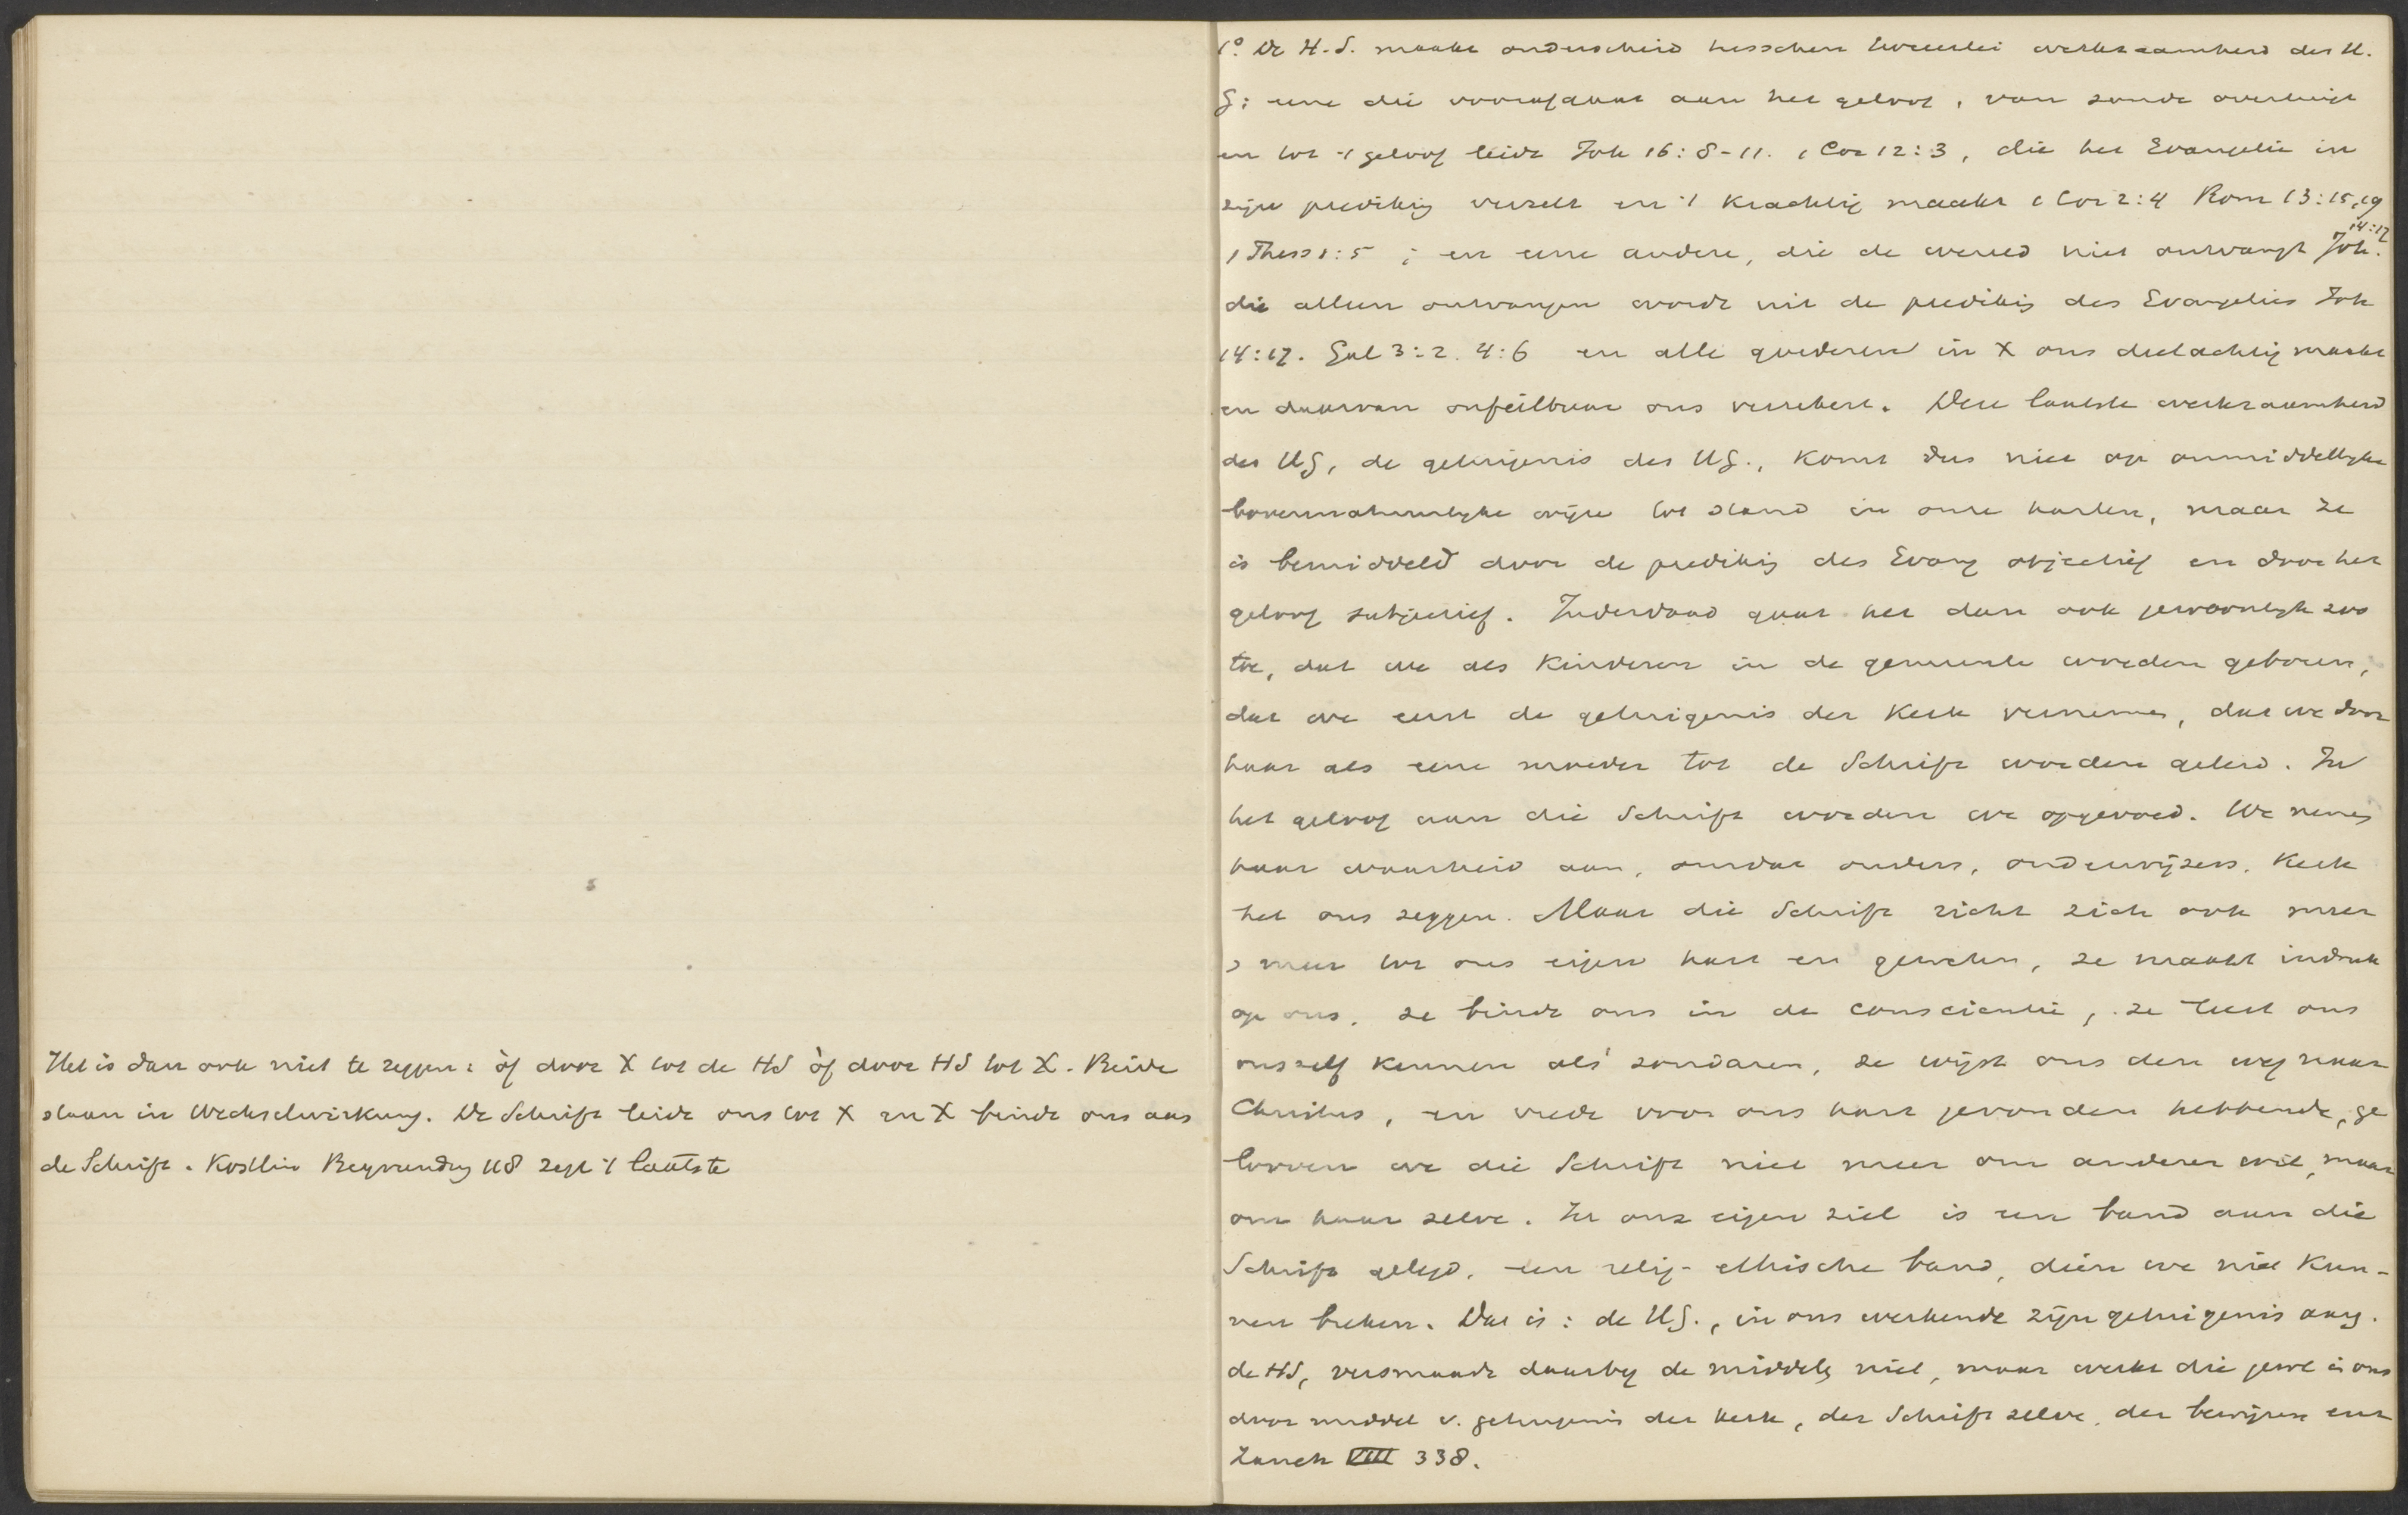 Het is dan ook niet te zeggen: òf door X tot de HS òf door HS tot X. Beide
staan in Wechselwirkung. De Schrift leidt ons tot X en X bindt ons aan
de Schrift. Kostlin Begrundg 118 zegt 't laatste
1° De H.S. maakt onderscheid tusschen tweeërlei werkzaamheid des H.
G: eene die voorafgaat aan het geloof, van zonde overtuigt
en tot 't geloof leidt Joh 16:8-11. 1 Cor 12:3, die het Evangelie in
zijn predikig verzelt en 't krachtig maakt 1 Cor 2:4 Rom 13:15,19
1 Thess 1:5 ; en eene andere, die de wereld niet ontvangt Joh. 14:17
die alleen ontvangen wordt uit de predikig des Evangelies Joh
14:17. Gal 3:2. 4:6 en alle goederen in X ons deelachtig maakt
en daarvan onfeilbaar ons verzekert. Deze laatste werkzaamheid
des HG, de getuigenis des HG., komt dus niet op onmiddellyke
bovennatuurlyke wijze tot stand in onze harten, maar ze
is bemiddeld door de predikig des Evang objectief en door het
geloof subjectief. Inderdaad gaat het dan ook gewoonlyk zoo
toe, dat we als kinderen in de gemeente worden geboren,
dat we eerst de getuigenis der Kerk vernemen, dat we door
haar als eene moeder tot de Schrift worden geleid. In
het geloof aan die Schrift worden we opgevoed. We nemen
haar waarheid aan, omdat ouders, onderwijzers, Kerk
het ons zeggen. Maar die Schrift richt zich ook meer
> meer tot ons eigen hart en geweten, ze maakt indruk
op ons, ze bindt ons in de conscientie, ze leert ons
onszelf kennen als zondaren, ze wijst ons den weg naar
Christus, en vrede voor ons hart gevonden hebbende, ge
looven we die Schrift niet meer om anderer wil, maar
om haar zelve. In onze eigen ziel is een band aan die
Schrift gelegd, een relig-ethische band, dien we niet kun-
nen breken. Dat is: de HG., in ons werkende zijn getuigenis aang.
de HS, versmaadt daarby de middelen niet, maar werkt die juist in ons
door middel v. getuigenis der kerk, der Schrift zelve, der bewijzen enz
Zanch VIII 338.